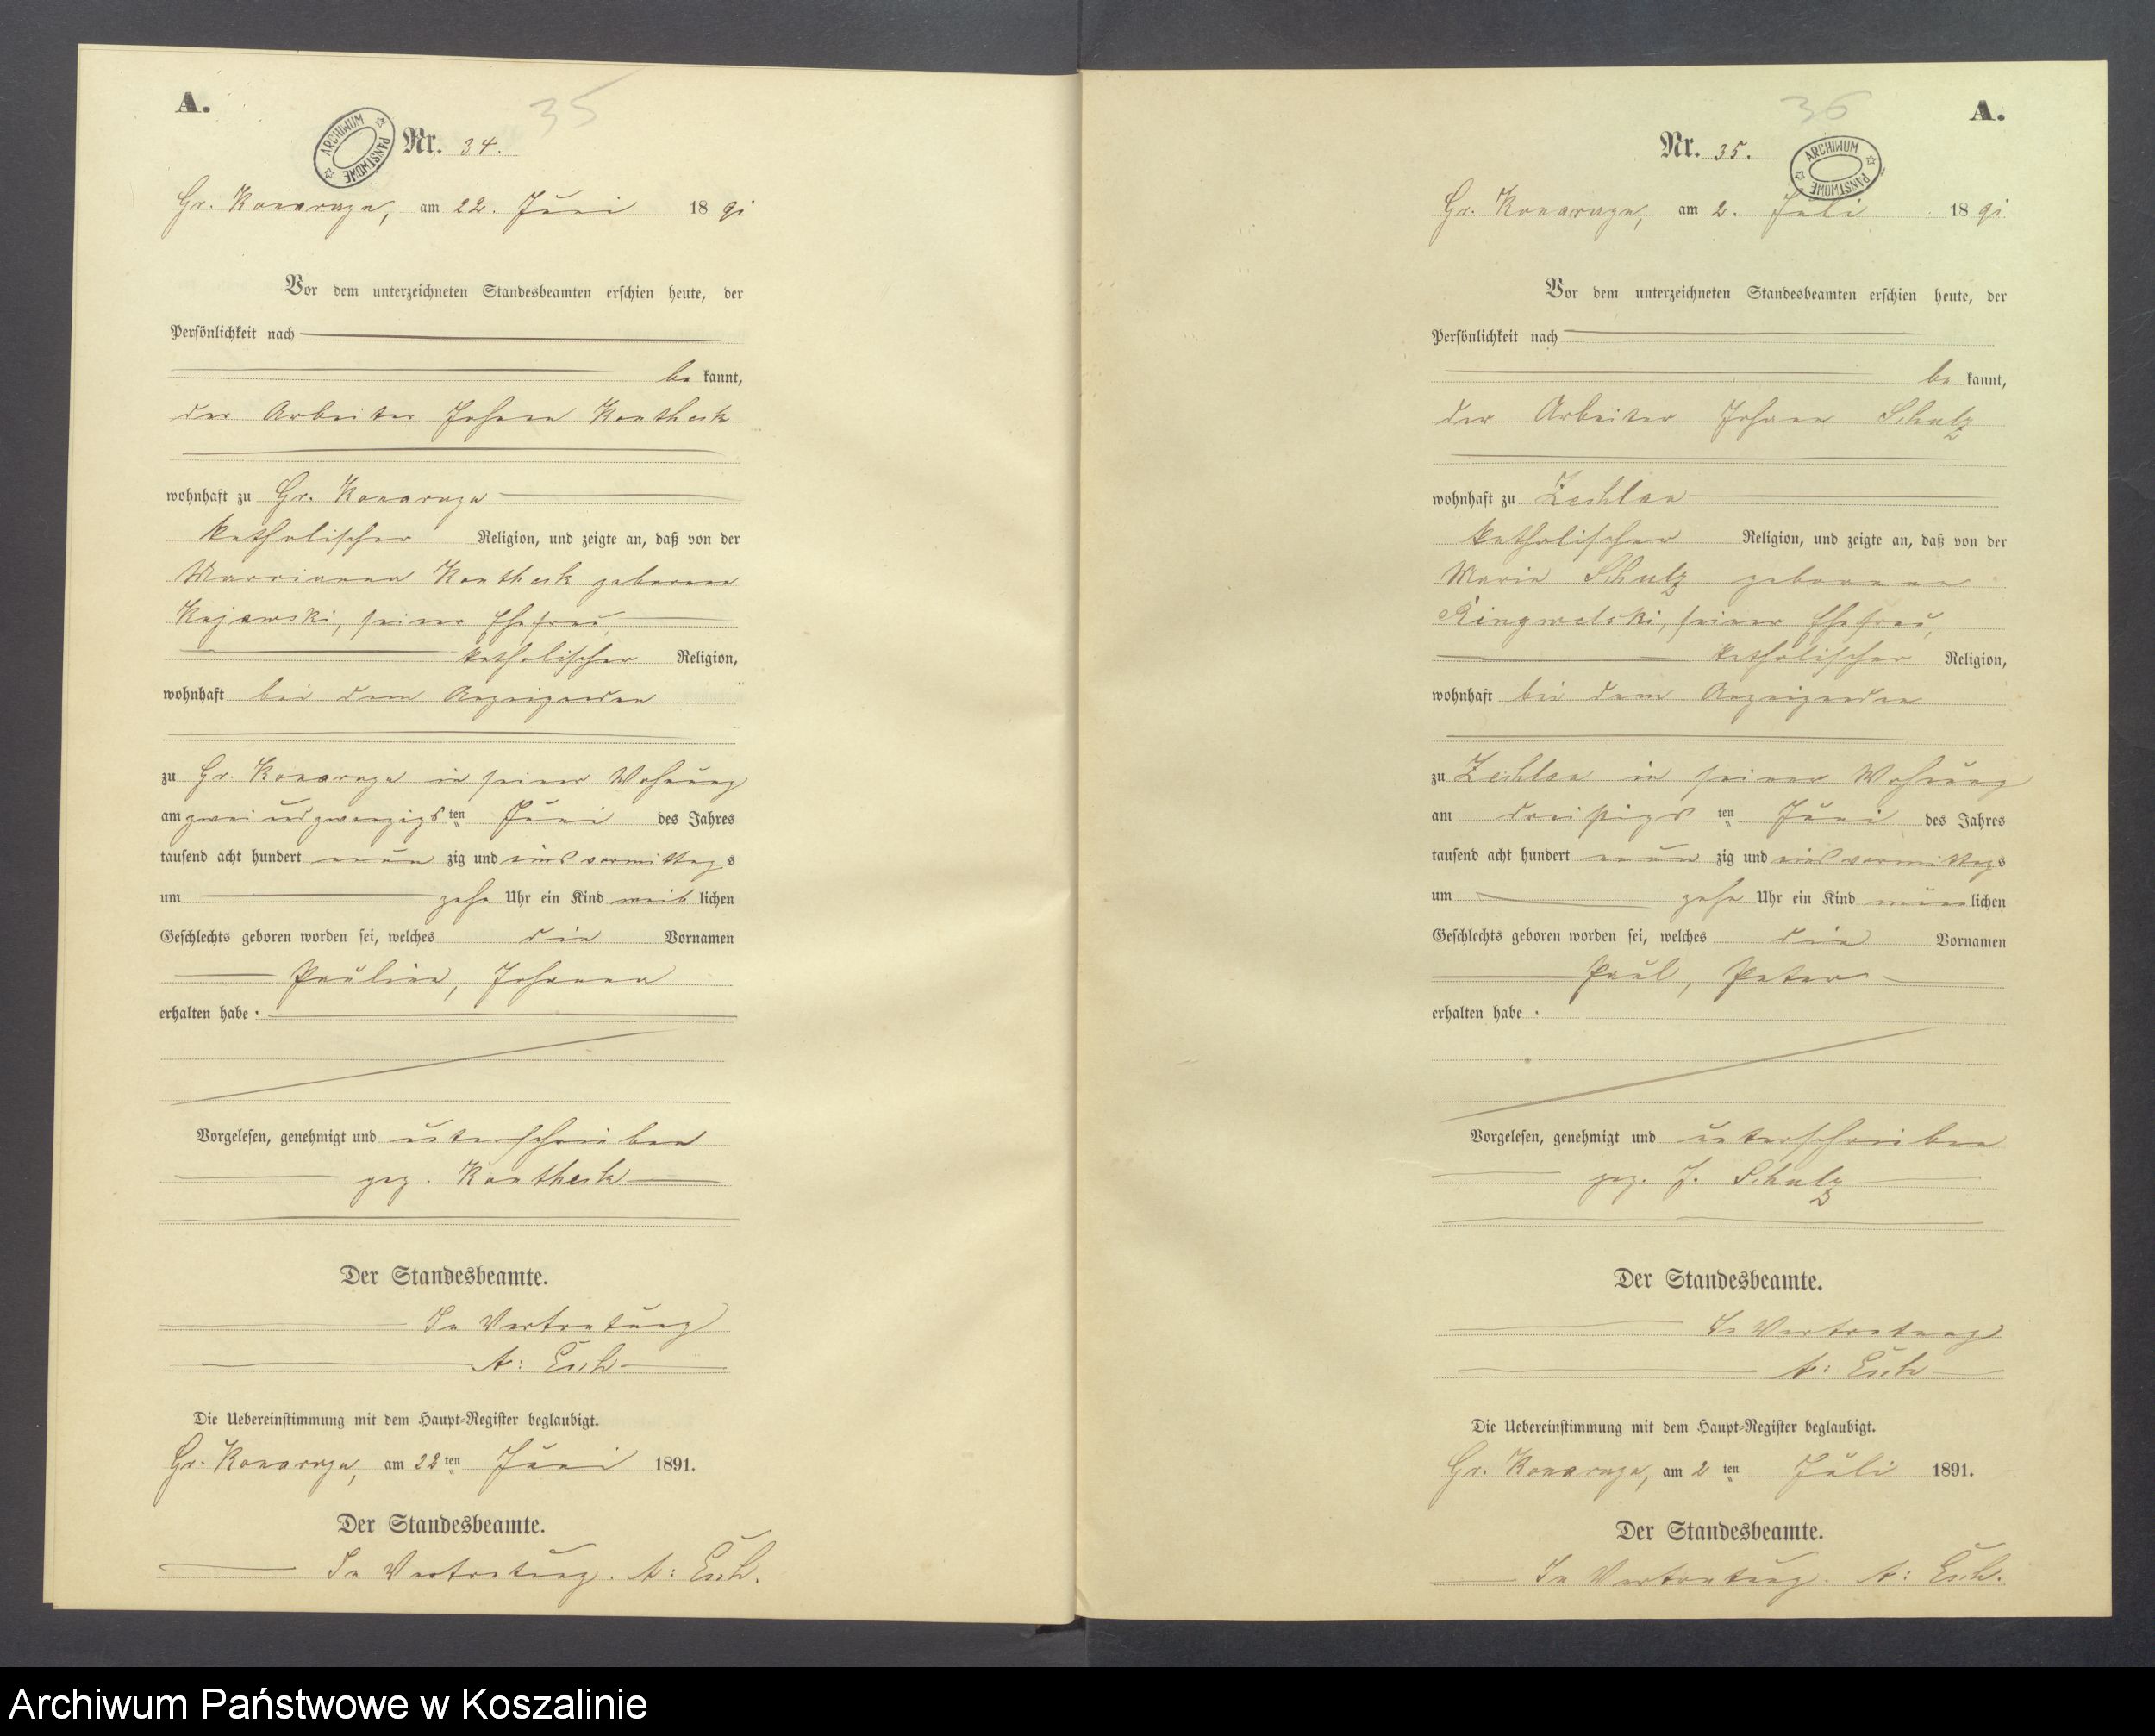 A.
35
ARCHIWUM PAŃSTWOWE
Nr. 34.
Gr. Konarzyn, am 22. Juni 1891
Vor dem unterzeichneten Standesbeamten erschien heute, der
Persönlichkeit nach
be kannt,
der Arbeiter Johann Konthack
wohnhaft zu Gr. Konarzyn
katholischer Religion, und zeigte an, daß von der
Marrianna Konthack geborene
Kujawski, seiner Ehefrau
katholischer Religion,
wohnhaft bei dem Anzeigenden
zu Gr. Konarzyn in seiner Wohnung
am zwei und zwanzigs ten Juni des Jahres
tausend acht hundert neun zig und eins vormittag s
um zehn Uhr ein Kind weib lichen
Geschlechts geboren worden sei, welches die Vornamen
Pauline, Johanna
erhalten habe.
Vorgelesen, genehmigt und unterschrieben
gez. Konthack
Der Standesbeamte.
In Vertretung
A: Esch
Die Uebereinstimmung mit dem Haupt-Register beglaubigt.
Gr. Konarzyn, am 22 ten Juni 1891.
Der Standesbeamte.
In Vertretung. A: Esch.
36
A.
Nr. 35.
ARCHIWUM PAŃSTWOWE
Gr. Konarzyn, am 2. Juli 1891
Vor dem unterzeichneten Standesbeamten erschien heute, der
Persönlichkeit nach
be kannt,
der Arbeiter Johann Schulz
wohnhaft zu Zechlau
katholischer Religion, und zeigte an, daß von der
Maria Schulz geborenen
Ringwelski, seiner Ehefrau,
katholischer Religion,
wohnhaft bei dem Anzeigenden
zu Zechlau in seiner Wohnung
am dreißigs ten Juni des Jahres
tausend acht hundert neun zig und eins vormittags
um zehn Uhr ein Kind männ lichen
Geschlechts geboren worden sei, welches die Vornamen
Paul, Peter
erhalten habe.
Vorgelesen, genehmigt und unterschrieben
gez. J. Schulz
Der Standesbeamte.
In Vertretung
A: Esch
Die Uebereinstimmung mit dem Haupt-Register beglaubigt.
Gr. Konarzyn, am 2 ten Juli 1891.
Der Standesbeamte.
In Vertretung. A: Esch.
Archiwum Państwowe w Koszalinie